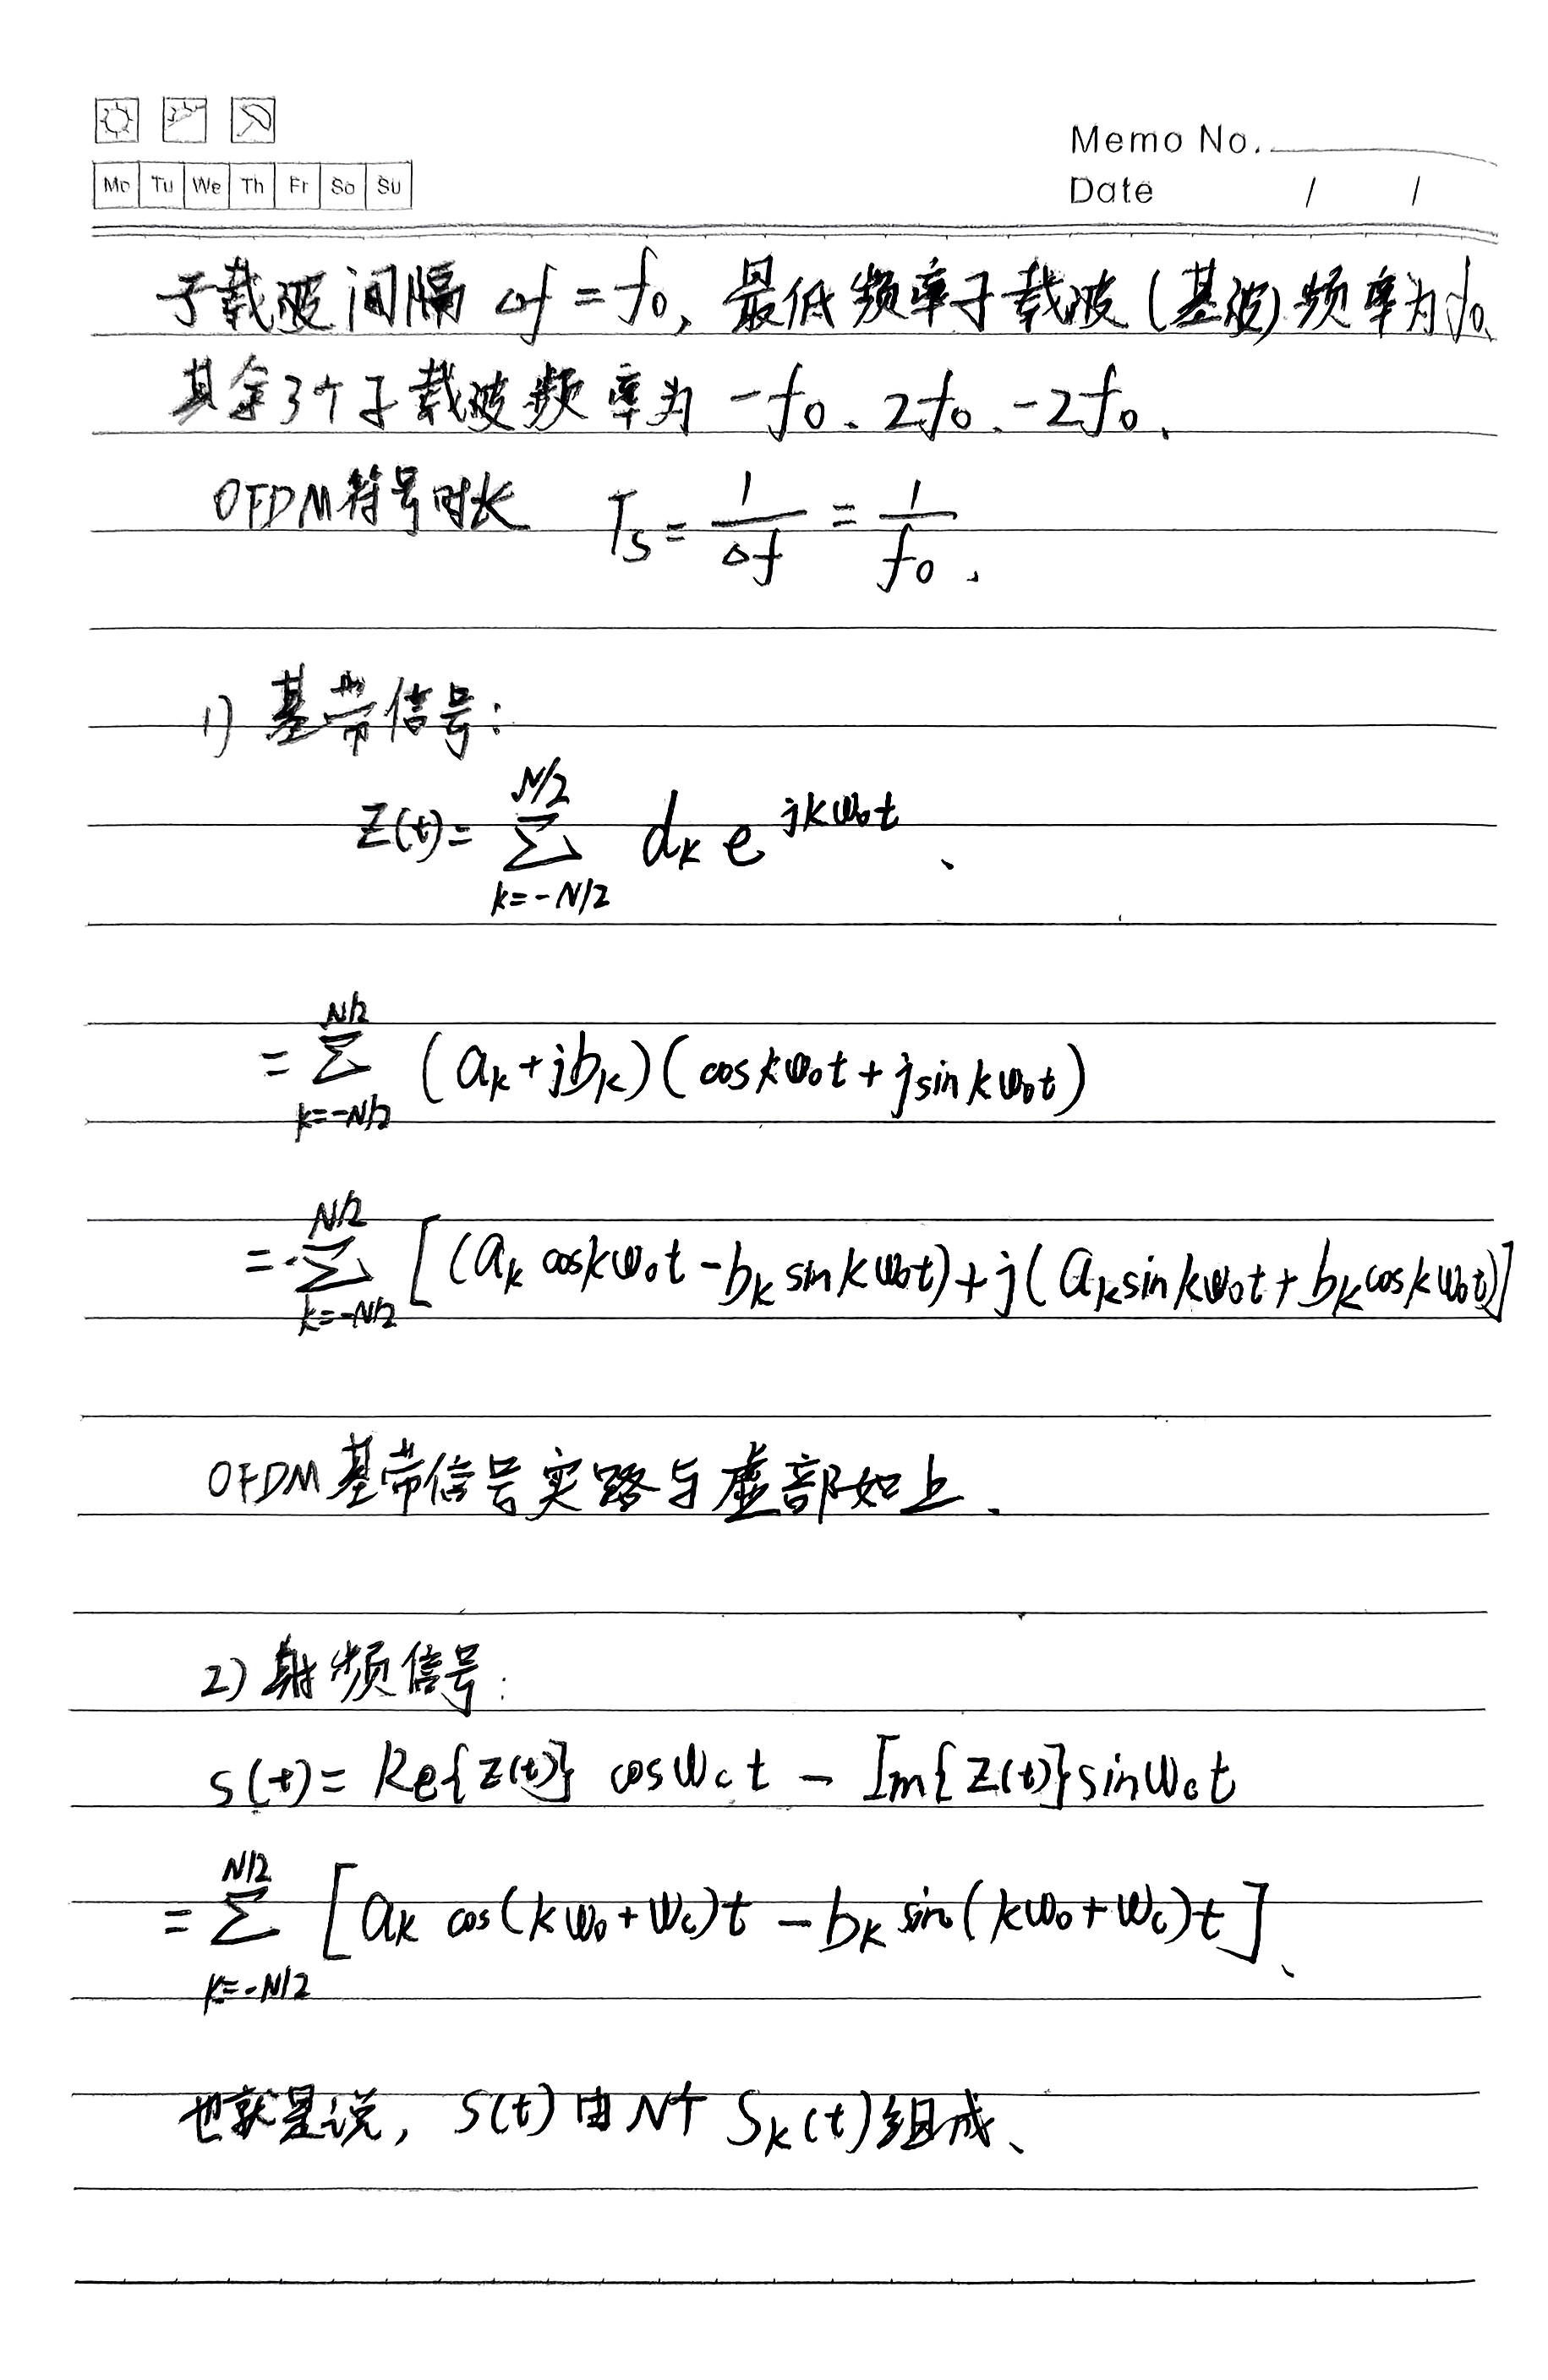 Memo No.
Mo Tu We Th Fr Sa Su
Date / /
子载波间隔 Δf = f₀, 最低频率子载波(基波)频率为f₀、
其余3个子载波频率为 -f₀、2f₀、-2f₀、
OFDM符号时长 Tₛ = 1/Δf = 1/f₀、
1) 基带信号:
Z(t) = ∑_{k=-N/2}^{N/2} d_k e^{jkω₀t}、
= ∑_{k=-N/2}^{N/2} (a_k + jb_k)(cos kω₀t + j sin kω₀t)
= ∑_{k=-N/2}^{N/2} [(a_k cos kω₀t - b_k sin kω₀t) + j(a_k sin kω₀t + b_k cos kω₀t)]
OFDM基带信号实路与虚部如上、
2) 射频信号:
s(t) = Re{Z(t)} cos ω_c t - Im{Z(t)} sin ω_c t
= ∑_{k=-N/2}^{N/2} [a_k cos(kω₀ + ω_c)t - b_k sin(kω₀ + ω_c)t]、
也就是说, S(t)由N个 S_k(t)组成、